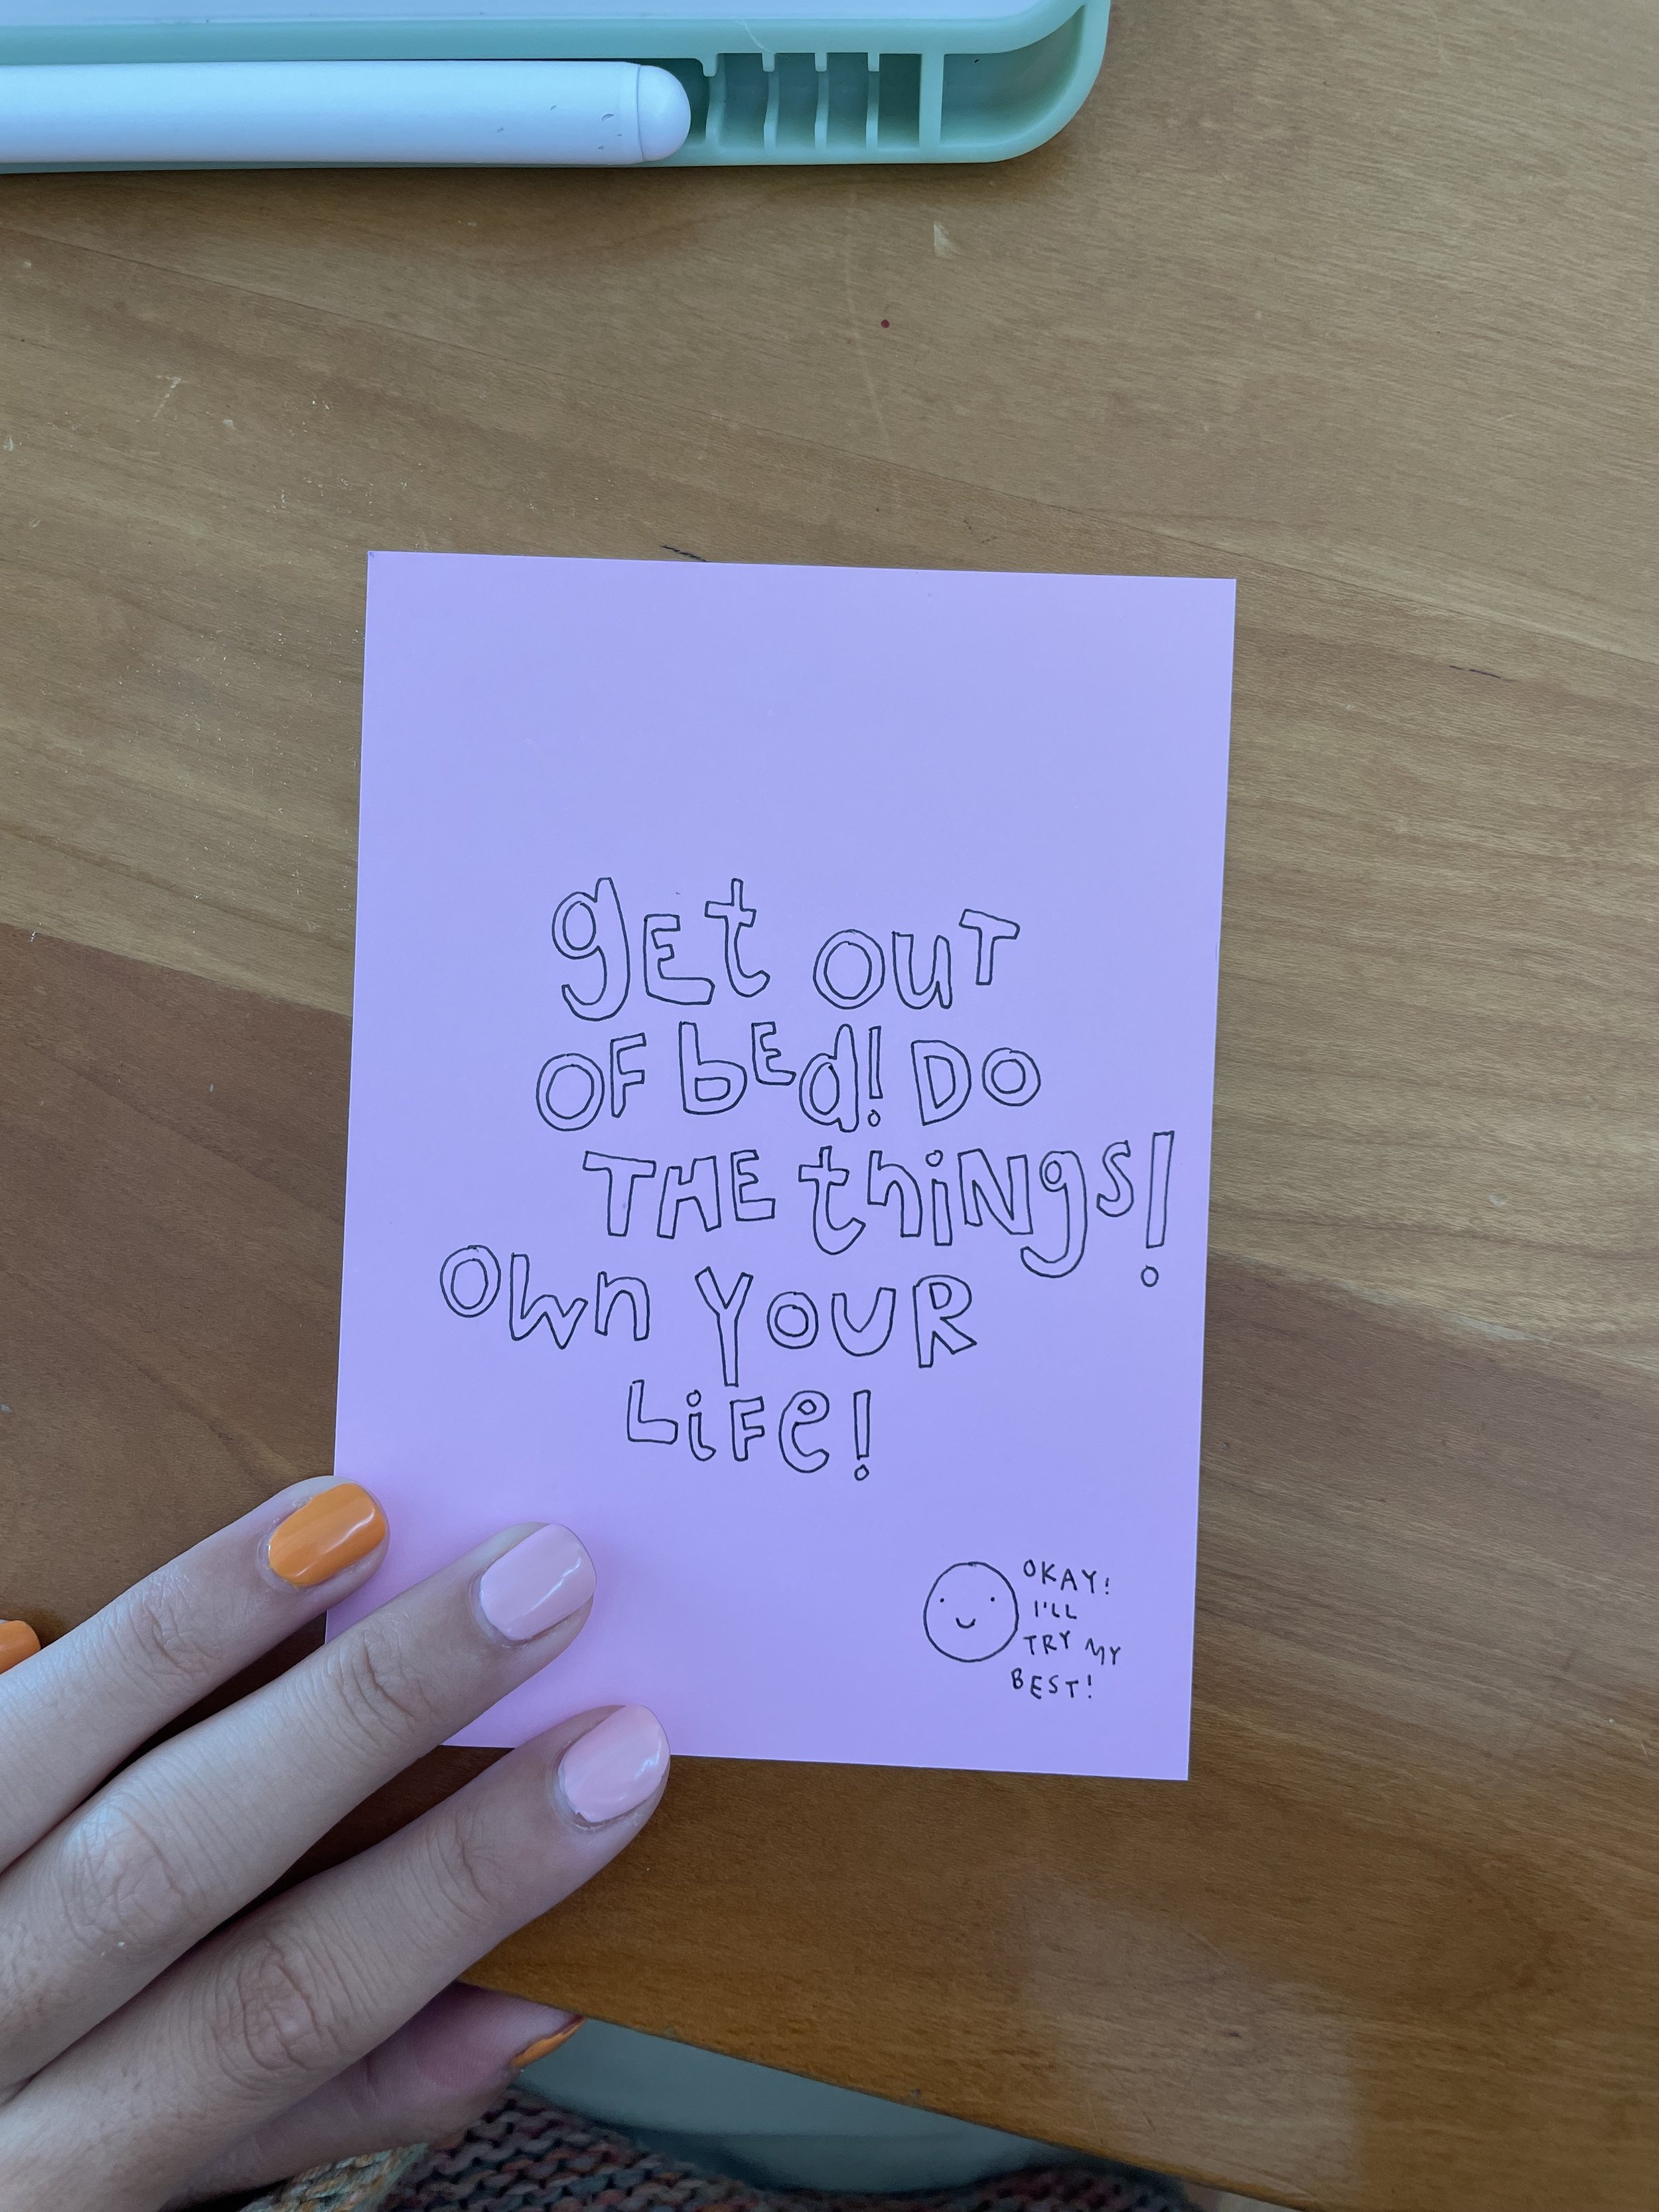 gEt OuT
OF bEd! DO
THE thiNgs!
Own YOUR
LiFe!
OKAY!
I'LL
TRY MY
BEST!